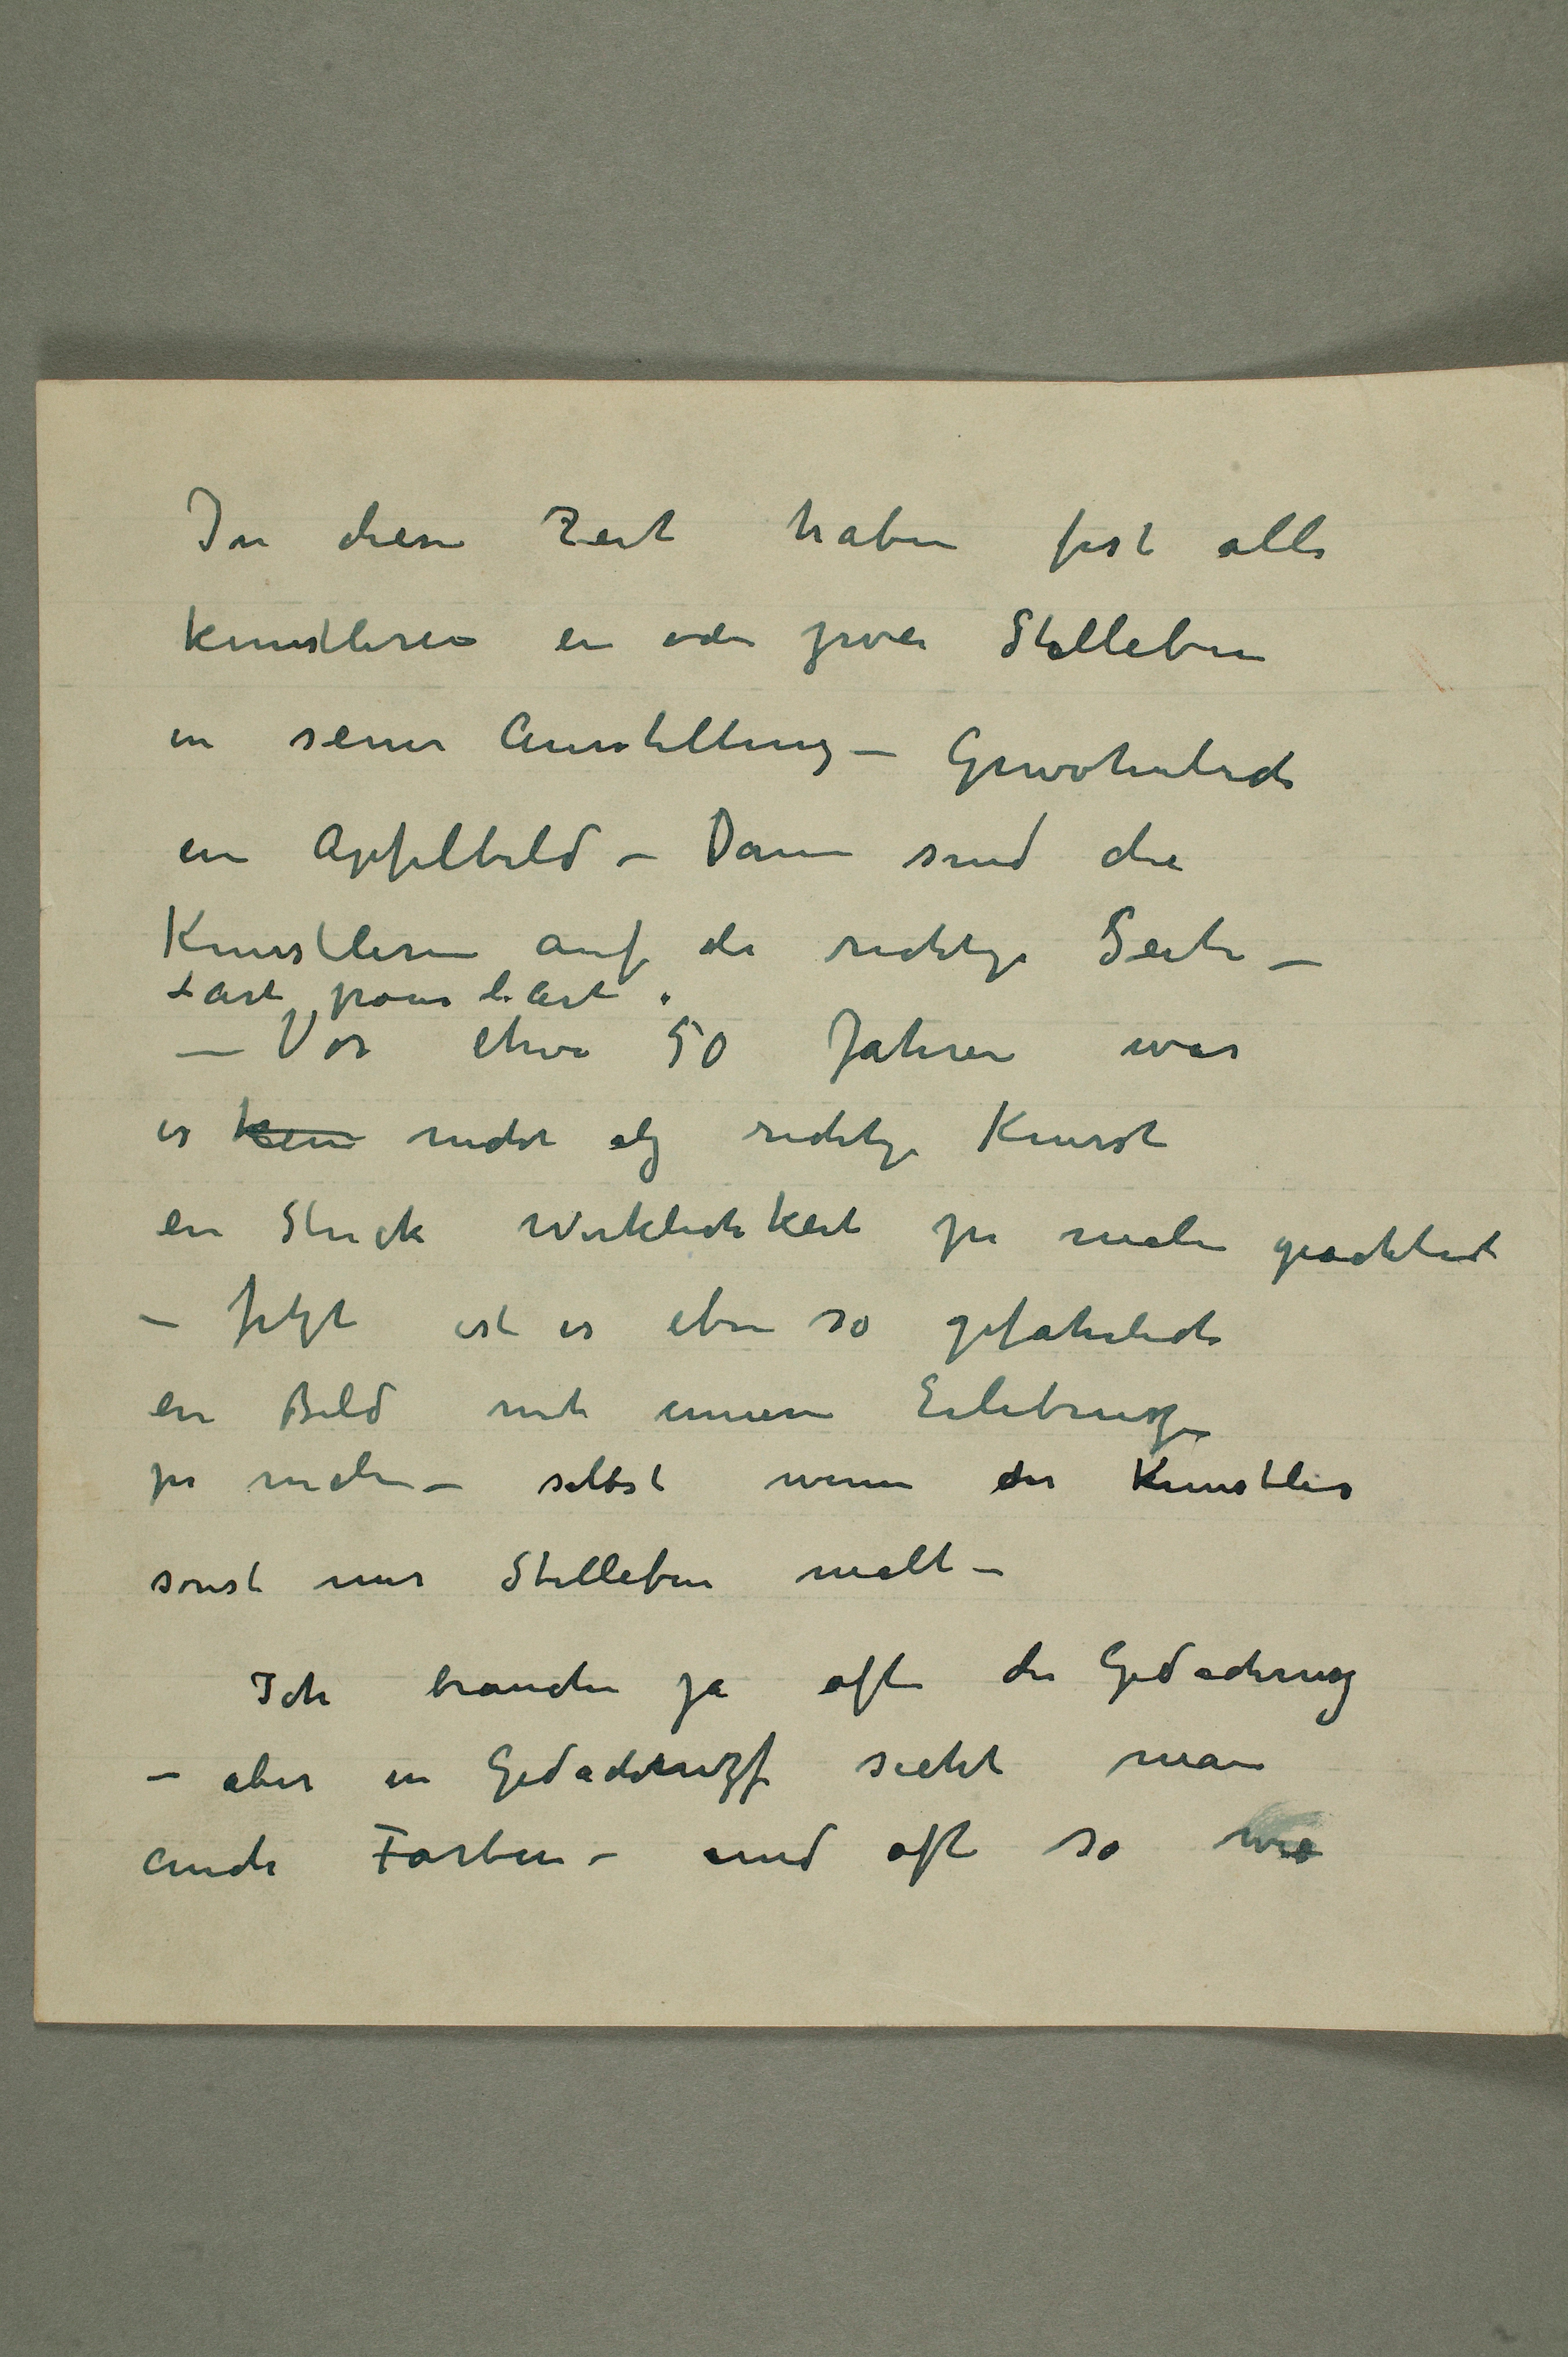 In diesen Zeit haben fast alle
kunstleren ein oder zwei Stilleben
in seiner Ausstellung – Gewohnlich
ein Apfelbild – Dann sind die
Kunstleren auf die richtige Seite –
Lart pour l'art.
– Vor etwa 50 Jahren war
es kein nicht als richtige Kunst
ein Stuck Wirklichkeit zu malen geachtet
– Jetzt ist es eben so gefahrlich
ein Bild mit inneren Erlebnisze
zu malen – selbst wenn der Kunstler
sonst nur Stilleben malt –
Ich brauche ja ofte die
– aber in sieht man
auch Farben – und oft so wie